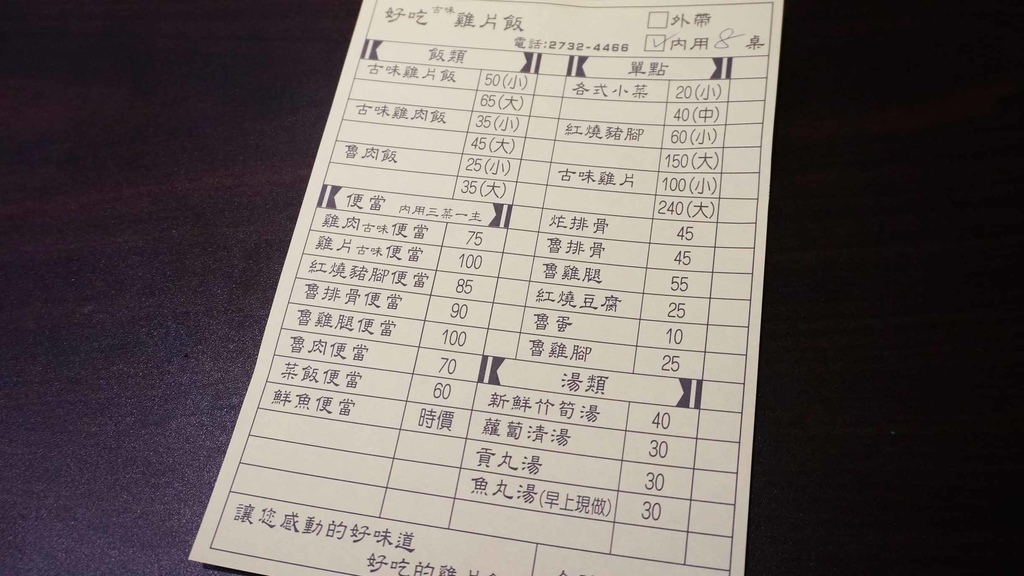 好吃古味雞片飯
外帶
電話:2732-4466
內用 8 桌
飯類
古味雞片飯 50(小)
65(大)
古味雞肉飯 35(小)
45(大)
魯肉飯 25(小)
35(大)
便當 內用三菜一主
雞肉古味便當 75
雞片古味便當 100
紅燒豬腳便當 85
魯排骨便當 90
魯雞腿便當 100
魯肉便當 70
菜飯便當 60
鮮魚便當 時價
單點
各式小菜 20(小)
40(中)
紅燒豬腳 60(小)
150(大)
古味雞片 100(小)
240(大)
炸排骨 45
魯排骨 45
魯雞腿 55
紅燒豆腐 25
魯蛋 10
魯雞腳 25
湯類
新鮮竹筍湯 40
蘿蔔清湯 30
貢丸湯 30
魚丸湯(早上現做) 30
讓您感動的好味道
好吃的雞片飯